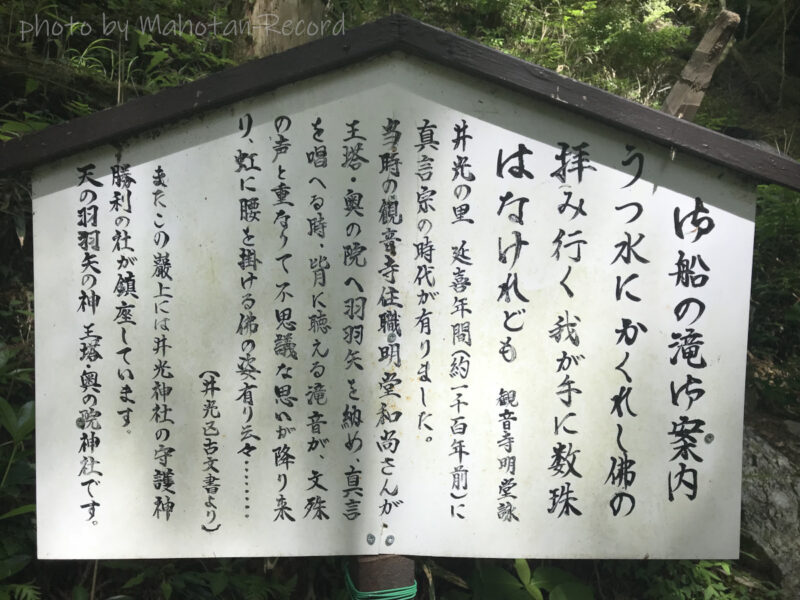 photo by Mahotan-Record
御船の滝御案内
うつ水にかくれし佛の
拝み行く我が手に数珠
はなけれども 観音寺明堂詠
井光の里 延喜年間(約一千百年前)に
真言宗の時代が有りました。
当時の観音寺住職明堂和尚さんが、
王塔・奥の院へ羽羽矢を納め、真言
を唱へる時、皆に聴える滝音が、文殊
の声と重なりて不思議な思いが降り来
り、虹に腰を掛ける佛の姿有り云々・・・・・・・・
(井光区古文書より)
またこの巌上には井光神社の守護神
勝利の社が鎮座しています。
天の羽羽矢の神 王塔・奥の院神社です。